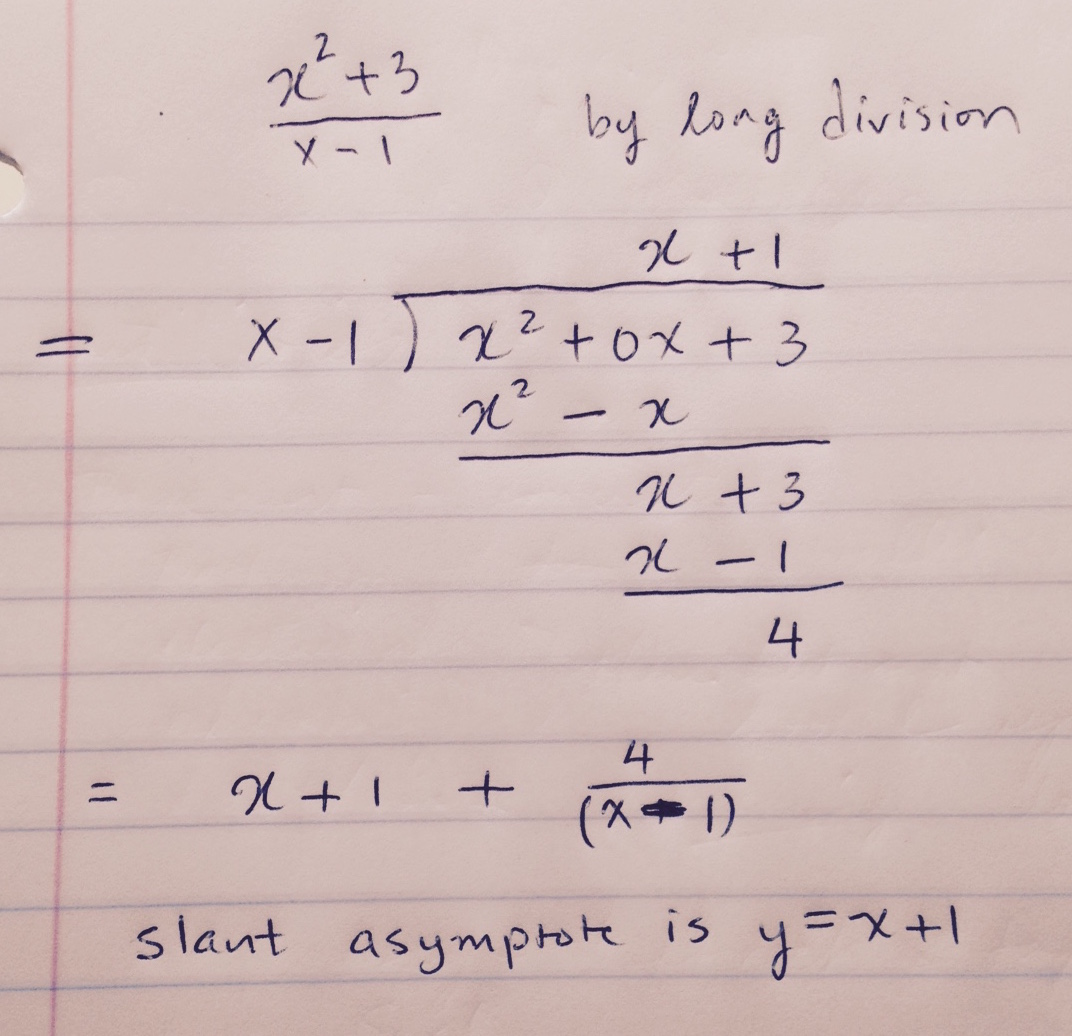 x² + 3
x - 1 by long division
x + 1
= x - 1 ) x² + 0x + 3
x² - x
x + 3
x - 1
4
= x + 1 + 4
(x - 1)
slant asymptote is y = x + 1